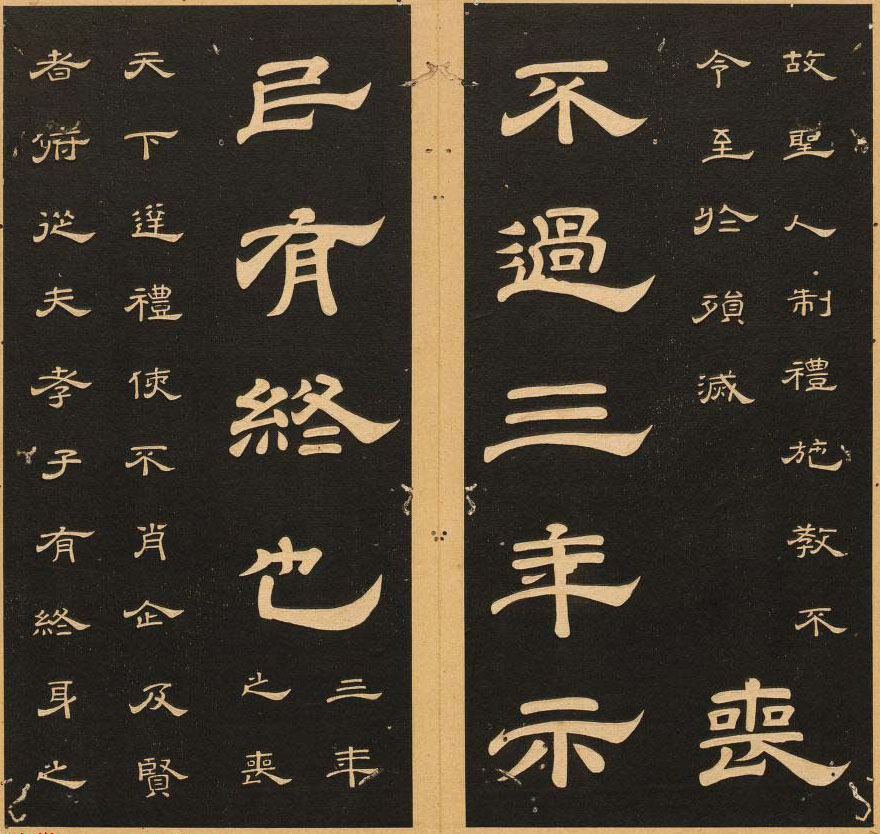 故聖人制禮施教不
令至於殞滅
喪
不過三年示
民有終也
三年
之喪
天下達禮使不肖企及賢
者俯從夫孝子有終身之